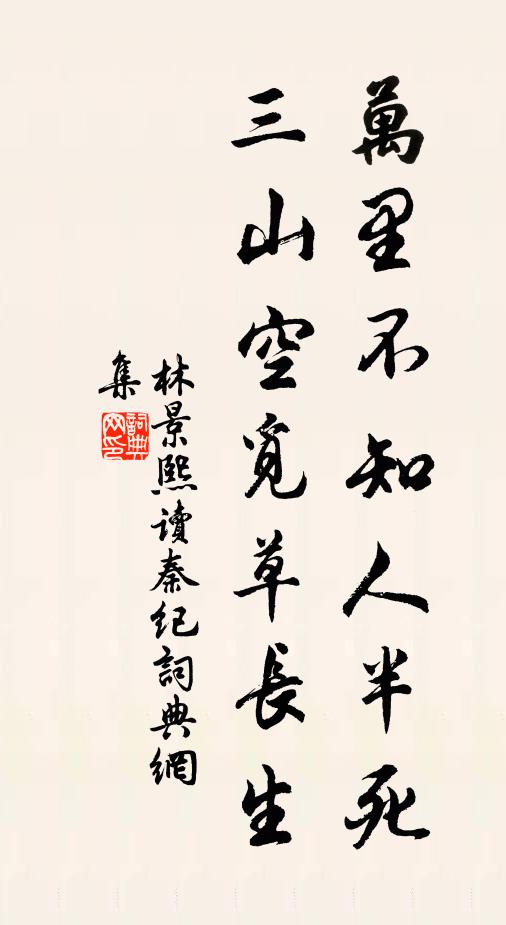 萬里不知人半死
三山空覓草長生
林景熙讀秦紀詞典網
集
詞典
网印